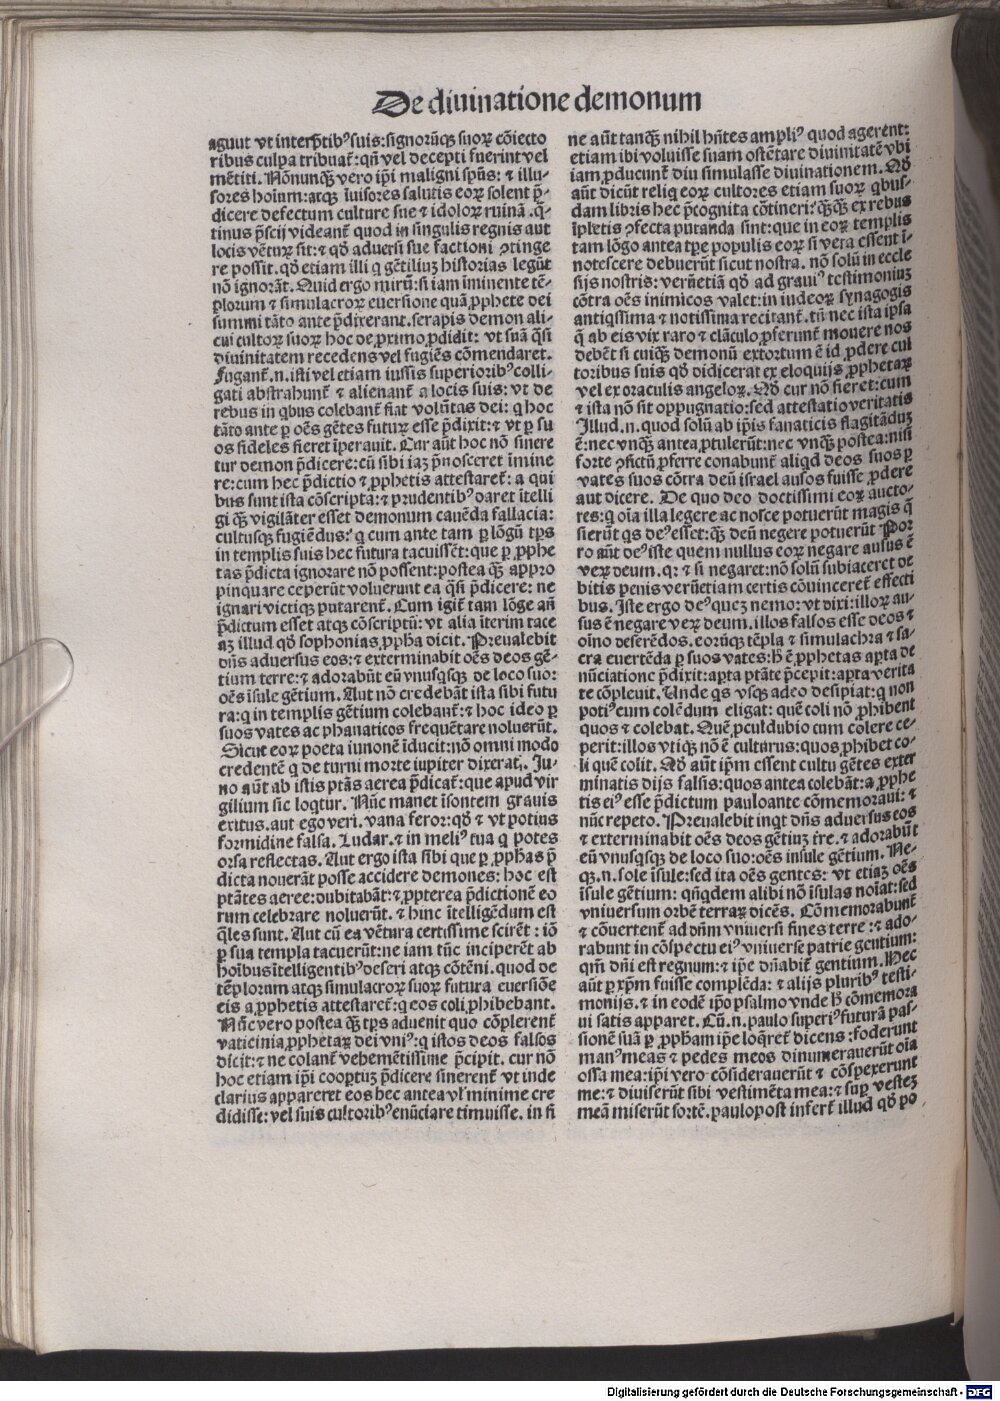 De diuinatione demonum
agunt vt interp̄tibꝰ suis: signorūqꝫ suoꝝ cōiecto
ribus culpa tribuat̄: qn̄ vel decepti fuerint vel
mētiti. Nōnunqꝫ vero ip̄i maligni spūs: ⁊ illu-
sores hoīum: atqꝫ īuisores salutis eoꝝ solent p̄-
dicere defectum culture sue ⁊ idoloꝝ ruinā. q̄-
tinus p̄scij videant̄ quod in singulis regnis aut
locis vētuꝝ sit: ⁊ qd̄ aduersi sue factioni ꝯtinge
re possit. qd̄ etiam illi q gētiliuꝫ historias legūt
nō ignorāt. Quid ergo mirū: si iam īminente tē-
ploꝝum ⁊ simulacroꝝ euersione quā ꝓphete dei
summi tāto ante p̄dixerant. serapis demon ali-
cui cultoꝝ suoꝝ hoc de ꝓximo ꝓdidit: vt suā q̄si
diuinitatem recedens vel fugiēs cōmendaret.
Fugant̄.n. isti vel etiam iussis superioribꝰ colli-
gati abstrahunt̄ ⁊ alienant̄ a locis suis: vt de
rebus in qbus colebant̄ fiat volūtas dei: q hoc
tāto ante ꝑ oēs gētes futuꝝ esse p̄dixit: ⁊ vt ꝑ su
os fideles fieret īperauit. Cur aūt hoc nō sinere
tur demon p̄dicere: cū sibi iaꝫ p̄nosceret īmine
re: cum hec p̄dictio ⁊ ꝓphetis attestaret̄: a qui
bus sunt ista cōscripta: ⁊ prudentibꝰ daret ītelli
gi qꝫ vigilāter esset demonum cauēda fallacia:
cultusqꝫ fugiēdus: q cum ante tam ꝑ lōgū tꝑs
in templis suis hec futura tacuissēt: que ꝑ ꝓphe
tas p̄dicta ignorare nō possent: postea qꝫ appro
pinquare ceperūt voluerunt ea q̄si p̄dicere: ne
ignari victiqꝫ putarent̄. Cum igit̄ tam lōge an̄
p̄dictum esset atqꝫ cōscriptū: vt alia īterim tace
aꝫ illud qd̄ sophonias ꝓpha dicit. Preualebit
dn̄s aduersus eos: ⁊ exterminabit oēs deos gē-
tium terre: ⁊ adorabūt eū vnusqsqꝫ de loco suo:
oēs īsule gētium. Aut nō credebāt ista sibi futu
ra: q in templis gētium colebant̄: ⁊ hoc ideo ꝑ
suos vates ac phanaticos frequētare noluerūt.
Sicut eoꝝ poeta iunonē īducit: nō omni modo
credentē q de turni morte iupiter dixerat. Ju-
no aūt ab istis ptās aerea p̄dicat̄: que apud vir
gilium sic loqtur. Nūc manet īsontem grauis
exitus. aut ego veri. vana feror: qd̄ ⁊ vt potius
formidine falsa. Ludar. ⁊ in meliꝰ tua q potes
orsa reflectas. Aut ergo ista sibi que ꝑ ꝓphās p̄
dicta nouerāt posse accidere demones: hoc est
ptātes aeree: dubitabāt: ⁊ ꝓpterea p̄dictionē eo
rum celebrare noluerūt. ⁊ hinc ītelligēdum est
q̄les sunt. Aut cū ea vētura certissime scirēt: iō
ꝑ sua templa tacuerūt: ne iam tūc inciperēt ab
hoībus ītelligentibꝰ deseri atqꝫ cōtēni. quod de
tēploꝝum atqꝫ simulacroꝝ suoꝝ futura euersiōe
eis a ꝓphetis attestaret̄: q eos coli ꝓhibebant.
Nūc vero postea qꝫ tꝑs aduenit quo cōplerent̄
vaticinia ꝓphetaꝝ dei vniꝰ: q istos deos falsos
dicit: ⁊ ne colant̄ vehemētissime p̄cipit. cur nō
hoc etiam ip̄i cooptuꝫ p̄dicere sinerent̄ vt inde
clarius appareret eos hec antea vl̓ minime cre
didisse: vel suis cultoribꝰ enūciare timuisse. in fi
ne aūt tanqꝫ nihil hn̄tes ampliꝰ quod agerent:
etiam ibi voluisse suam ostētare diuinitatē vbi
iam ꝓducunt̄ diu simulasse diuinationem. Qd̄
aūt dicūt reliq eoꝝ cultores etiam suoꝝ qbus-
dam libris hec p̄cognita cōtineri: qꝫqꝫ ex rebus
īpletis ꝯfecta putanda sint: que in eoꝝ templis
tam lōgo antea tꝑe populis eoꝝ si vera essent ī-
notescere debuerūt sicut nostra. nō solū in eccle
sijs nostris: verūetiā qd̄ ad grauiꝰ testimoniuꝫ
cōtra oēs inimicos valet: in iudeoꝝ synagogis
antiqssima ⁊ notissima recitant̄. tn̄ nec ista ipsa
q̄ ab eis vix raro ⁊ clāculo ꝓferunt̄ mouere nos
debēt si cuiqꝫ demonū extortum ē id ꝓdere cul
toribus suis qd̄ didicerat ex eloquijs ꝓphetaꝝ
vel ex oraculis angeloꝝ. Qd̄ cur nō fieret: cum
⁊ ista nō sit oppugnatio: sed attestatio veritatis
Illud.n. quod solū ab ip̄is fanaticis flagitāduꝫ
ē: nec vnqꝫ antea ꝓtulerūt: nec vnqꝫ postea: nisi
forte ꝯfictū ꝓferre conabunt̄ aliqd deos suos ꝑ
vates suos cōtra deū israel ausos fuisse ꝓdere
aut dicere. De quo deo doctissimi eoꝝ aucto-
res: q oīa illa legere ac nosce potuerūt magis q̄
sierūt qs deꝰ esset: qꝫ deū negere potuerūt Por
ro aūt deꝰ iste quem nullus eoꝝ negare ausus ē
veꝝ deum. qꝛ ⁊ si negaret: nō solū subiaceret de
bitis penis verūetiam certis cōuinceret̄ effecti
bus. Iste ergo deꝰ queꝫ nemo: vt dixi: illoꝝ au-
sus ē negare veꝝ deum. illos falsos esse deos ⁊
oīno deserēdos. eorūqꝫ tēpla ⁊ simulachra ⁊ sa-
cra euertēda ꝑ suos vates: h̄ ē ꝓphetas aꝑta de
nūciatione p̄dixit: aꝑta ptāte p̄cepit: aꝑta verita
te cōpleuit. Unde qs vsqꝫ adeo desipiat: q non
potiꝰ eum colēdum eligat: quē coli nō ꝓhibent
quos ⁊ colebat. Quē ꝓculdubio cum colere ce-
perit: illos vtiqꝫ nō ē culturus: quos ꝓhibet co-
li quē colit. Qd̄ aūt ip̄m essent cultu gētes exter
minatis dijs falsis: quos antea colebāt: a ꝓphe
tis eiꝰ esse p̄dictum pauloante cōmemoraui: ⁊
nūc repeto. Preualebit inqt dn̄s aduersus eos
⁊ exterminabit oēs deos gētiuꝫ t̄re. ⁊ adorabūt
eū vnusqsqꝫ de loco suo: oēs insule gētium. Ne-
qꝫ.n. sole īsule: sed ita oēs gentes: vt etiaꝫ oēs
īsule gētium: qn̄qdem alibi nō īsulas noīat: sed
vniuersum orbē terraꝝ dicēs. Cōmemorabunt̄
⁊ cōuertent̄ ad dn̄m vniuersi fines terre: ⁊ ado-
rabunt in cōspectu eiꝰ vniuerse patrie gentium:
qm̄ dn̄i est regnum: ⁊ ip̄e dn̄abit̄ gentium. Hec
aūt ꝑ xp̄m fuisse complēda: ⁊ alijs pluribꝰ testi-
monijs. ⁊ in eodē ip̄o psalmo vnde h̄ cōmemora
ui satis apparet. Cū.n. paulo superiꝰ futurā pas-
sionē suā ꝑ ꝓpham ip̄e loq̄ret̄ dicens: foderunt
manꝰ meas ⁊ pedes meos dinumerauerūt oīa
ossa mea: ip̄i vero cōsiderauerūt ⁊ cōspexerunt
me: ⁊ diuiserūt sibi vestimēta mea: ⁊ suꝑ vesteꝫ
meā miserūt sortē. paulopost infert̄ illud qd̄ po
Digitalisierung gefördert durch die Deutsche Forschungsgemeinschaft - DFG